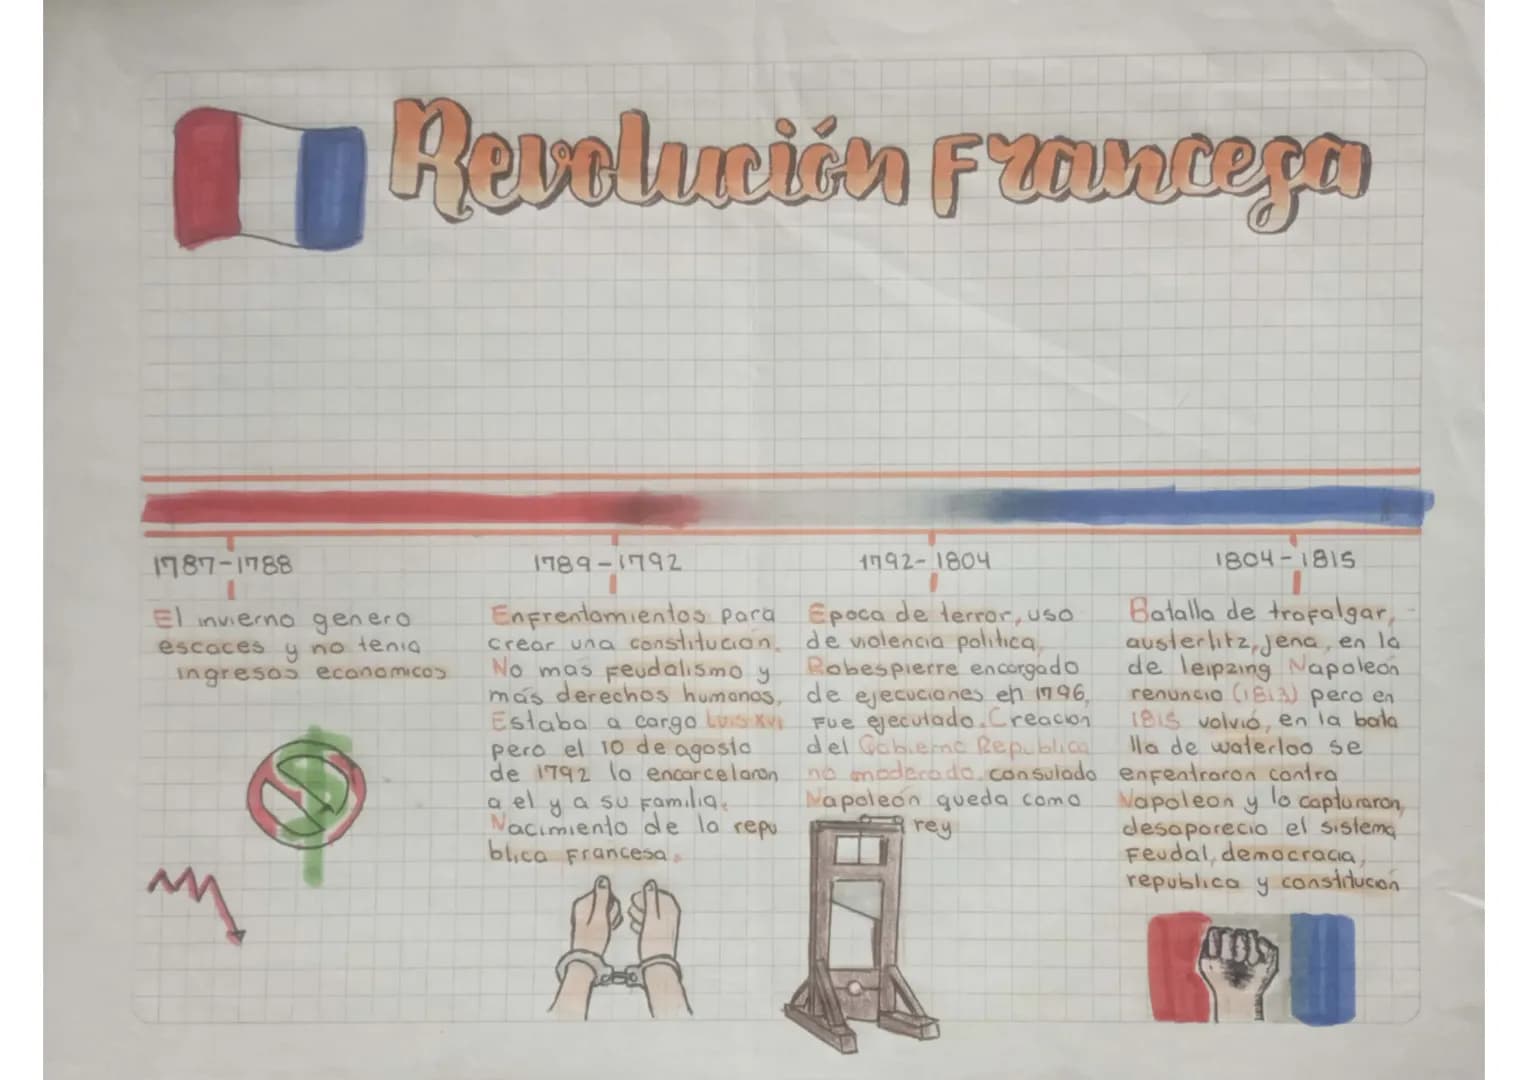 Revolución Francesa
1787-1788
El invierno genero
escaces y no tenia
ingresos economicos
1789-1792
Enfrentamientos para
crear una constitución.
No mas feudalismo y
más derechos humanos.
Estaba a cargo Luis XVI
pero el 10 de agosto
de 1792 lo encarcelaron
a el y a su familia.
Nacimiento de la repu
blica Francesa.
1792-1804
Epoca de terror, uso
de violencia politica,
Robespierre encargado
de ejecuciones en 1796,
Fue ejecutado. Creacion
del Gobierno Republica
no moderado, consulado
Napoleón queda como
rey
1804-1815
Batalla de trafalgar,
austerlitz, jena, en la
de leipzing Napoleón
renuncio (1813) pero en
1815 volvió, en la bata
lla de waterloo se
enfentraron contra
Napoleon y lo capturaron,
desaparecio el sistema
Feudal, democracia,
republica y constitucón